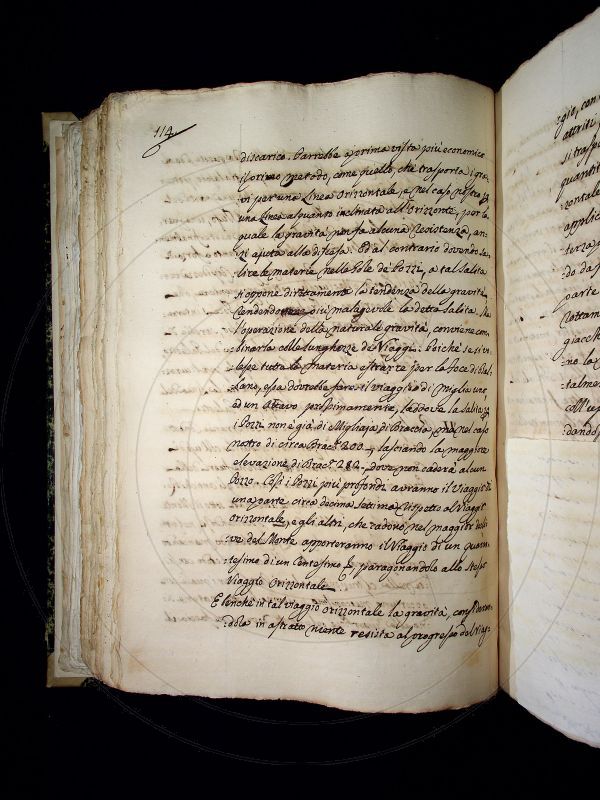 114
discarico. Parrebbe a prima vista più economico
il primo metodo, come quello, che trasporta i gra-
vi per una linea orizzontale, e nel caso nostro p
una linea alquanto inclinata all'Orizonte, per la
quale la gravità non fa alcuna resistenza, an-
zi ajuta alla discesa. Ed al contrario dovendo sa-
lire le materie, nelle Gole de' Pozzi, a tal salita
s'oppone direttamente la tendenza della gravità,
rendendo più malagevole la detta salita. Ma
l'operazione della naturale gravità, conviene com-
binarla colle lunghezze de' Viaggi. Poiché se si vo-
lesse tutta la materia estrarre per la foce di
essa dovrebbe fare il viaggio di Miglia uno,
ed un ottavo prossimamente, laddove la salita p
i Pozzi non è già di Migliaja di Braccia, ma nel caso
nostro di circa Brac. 200, lasciando la maggiore
elevazione di Brac. 282, dove non caderà alcun
Pozzo. Così i Pozzi più profondi avranno il Viaggio di
una parte circa decima settima rispetto al Viaggio
orizzontale, e gli altri, che cadono nel maggior decli-
ve del Monte apporteranno il Viaggio di un quaran-
tesimo di un Centesimo paragonandolo allo stesso
Viaggio Orizzontale
E benché in tal viaggio orizzontale la gravità, consideran-
dola in astratto niente resista al progresso del Viag-
gio, con
attriti
si trasp
quantit
zontale
applic
terza
do da
parte
giacch
no la
talmen
dando